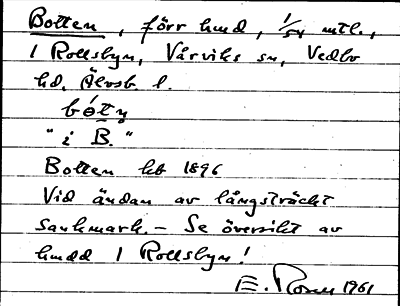 Botten, förr hmd, 1/54 mtl.,
1 Rollsbyn, Vårviks sn, Vedbo
hd. Älvsb. l.
bótņ
"i B."
Botten hb 1896
Vid ändan av långsträckt
sankmark. – Se översikt av
hmdd 1 Rollsbyn!
E. 1961